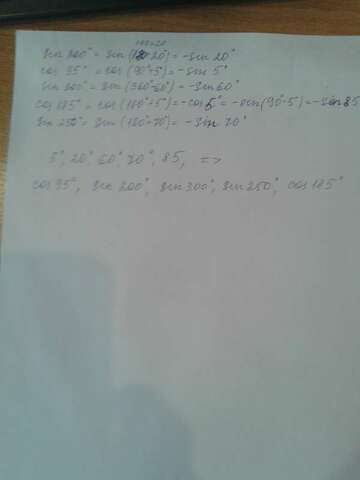 180+20
sin 200° = sin (180+20°) = -sin 20°
cos 95° = cos (90°+5°) = -sin 5°
sin 300° = sin (360°-60°) = -sin 60°
cos 185° = cos (180°+5°) = -cos 5° = -sin (90°-5) = -sin 85
sin 250° = sin (180°+70°) = -sin 70°
5°, 20°, 60°, 70°, 85, =>
cos 95°, sin 200°, sin 300°, sin 250°, cos 185°